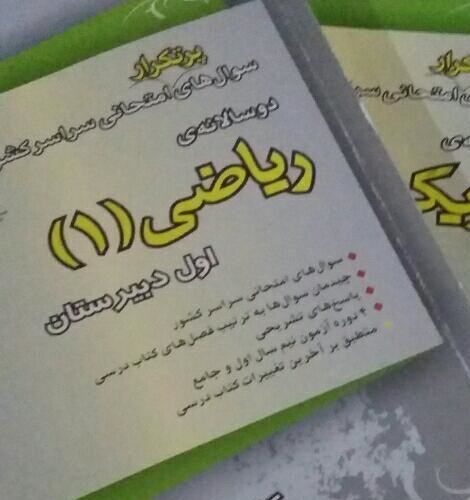 پرتکرار
سوال‌های امتحانی سراسر کشور
دوسالانه‌ی
ریاضی (۱)
اول دبیرستان
سوال‌های امتحانی سراسر کشور
چیدمان سوال‌ها به ترتیب فصل‌های کتاب درسی
پاسخ‌های تشریحی
+ دوره آزمون نیم سال اول و جامع
منطبق بر آخرین تغییرات کتاب درسی
تکرار
امتحانی
یک